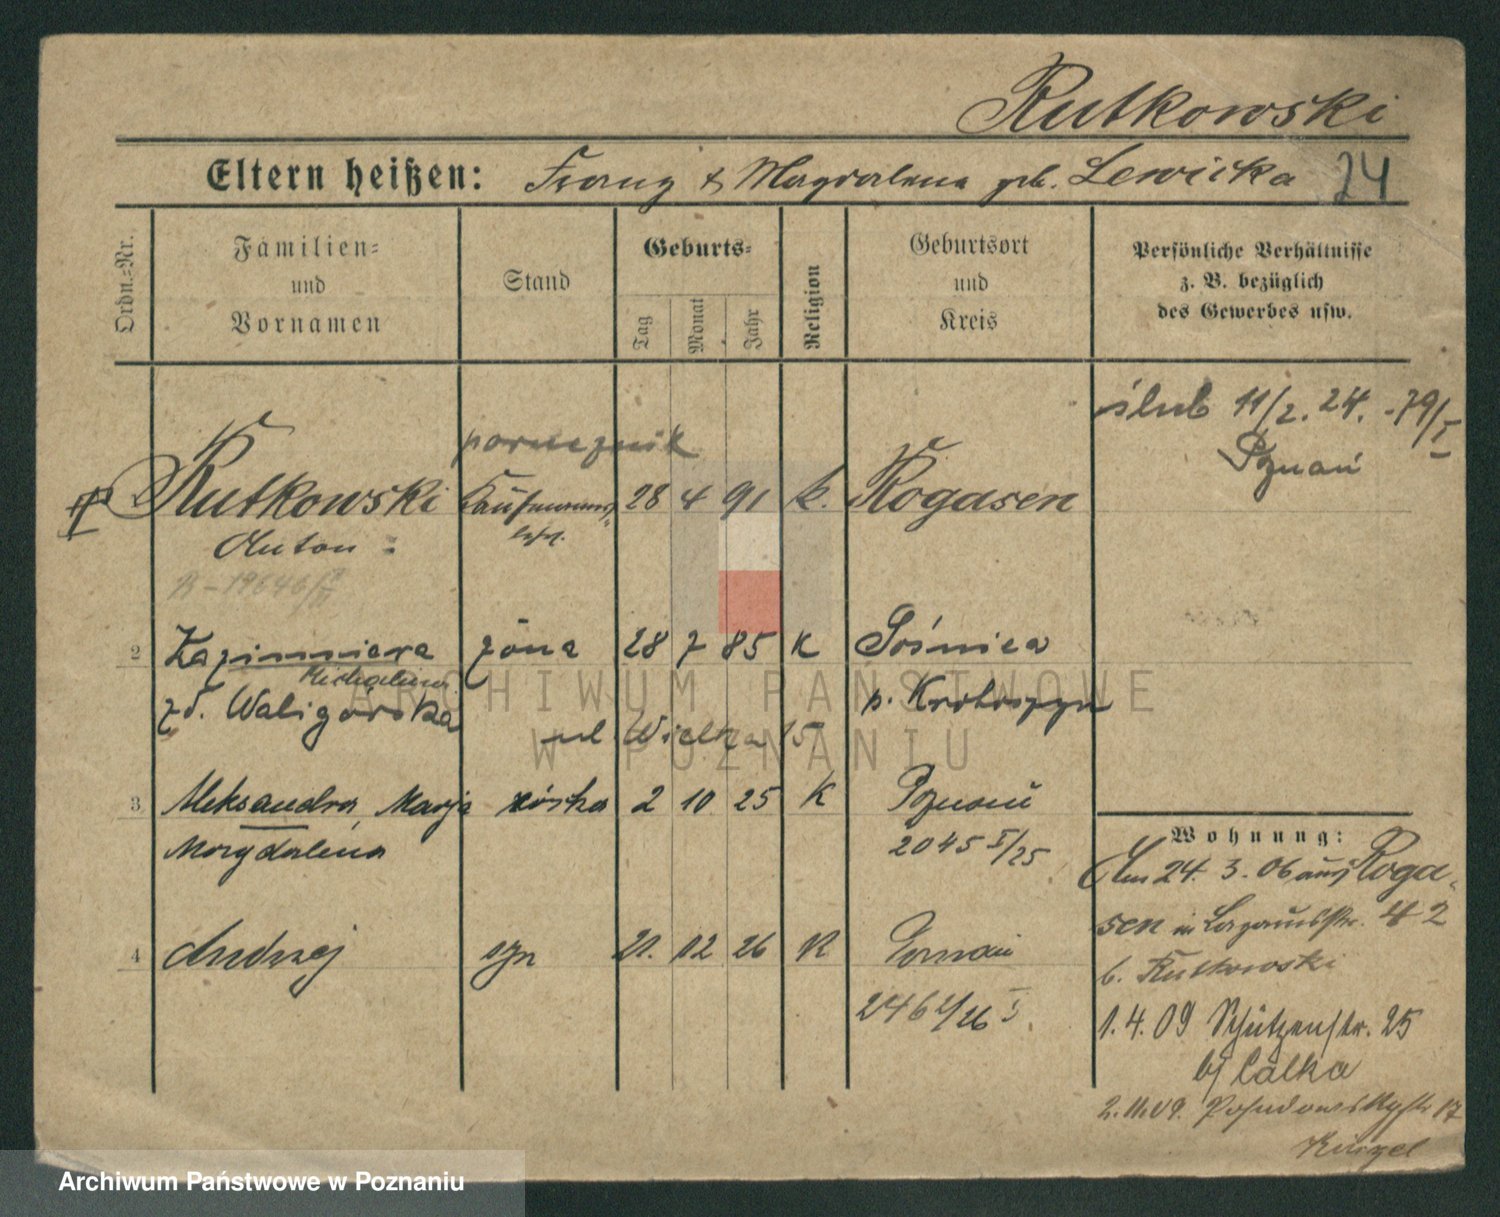 Rutkowski
Eltern heißen: Franz & Magdalena geb. Lewicka 24
Ordn.=Nr.
Familien=
und
Vornamen
Stand
Geburts=
Tag
Monat
Jahr
Religion
Geburtsort
und
Kreis
Persönliche Verhältnisse
z. B. bezüglich
des Gewerbes usw.
ślub 11/2. 24. -79/I
Poznań
porucznik
Rutkowski Kaufmanns 28 4 91 k. Rogasen
Anton lehrl.
R-19646/
2 Kazimiera żona 28 7 85 K Sośnica
Michalina
zd. Waligórska p. Krotoszyn
ul. Wielka 15
3 Aleksandra, Marja córka 2 10 25 K Poznań
Magdalena 2045 I/25
4 Andrzej syn 21. 12 26 K Poznań
246 /26 I
Wohnung:
Am 24. 3. 06 aus Roga-
sen in Lazarusstr. 42
b. Rutkowski
1.4.09 Schützenstr. 25
bj Calka
2.11.09. 17
ARCHIWUM PAŃSTWOWE
W POZNANIU
Archiwum Państwowe w Poznaniu